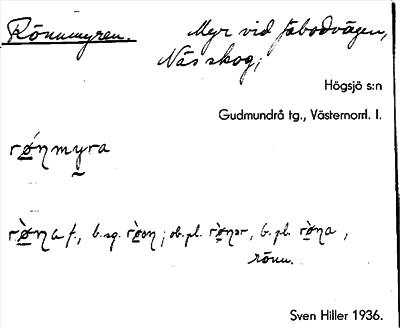 Rönnmyren. Myr vid fäbodvägen,
Näs skog;
Högsjö s:n
Gudmundrå tg., Västernorrl. l.
rǿnmyra
rø̀na f., b.sg. rø̀on; ob.pl. rø̀nər, b.pl. rø̀na,
rönn.
Sven Hiller 1936.